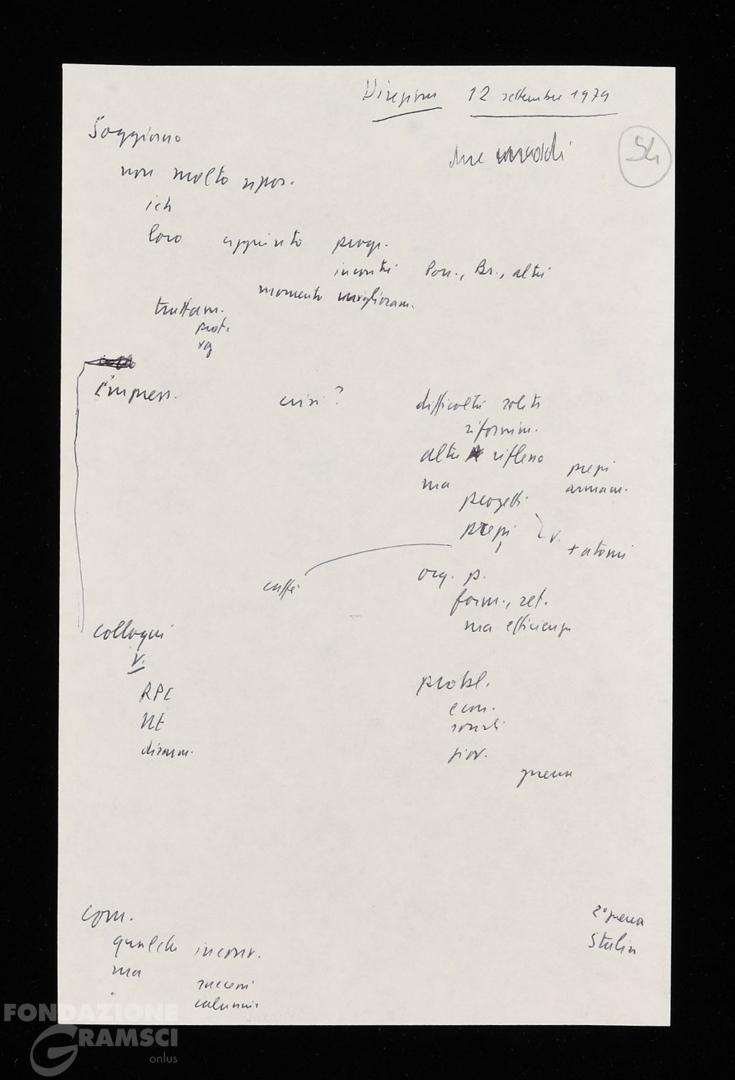 Direzione 12 settembre 1979
54
Soggiorno
non molto ripos.
ich
loro appunto progr.
incontri Pon., Br., altri
momento miglioram.
trattam.
prot.
L'impress. crisi?
difficoltà solite
riformim.
altre riflesso
ma
prepi armam.
progetti
prepi v. + atomi
caffè
org. p.
form., ret.
ma efficienza
colloqui
V.
RPC
NE
disarm.
probl.
econ.
sociali
giov.
guerra
com.
qualche inconv.
ma
successi
calunnie
2ª guerra
Stalin
FONDAZIONE
GRAMSCI
onlus